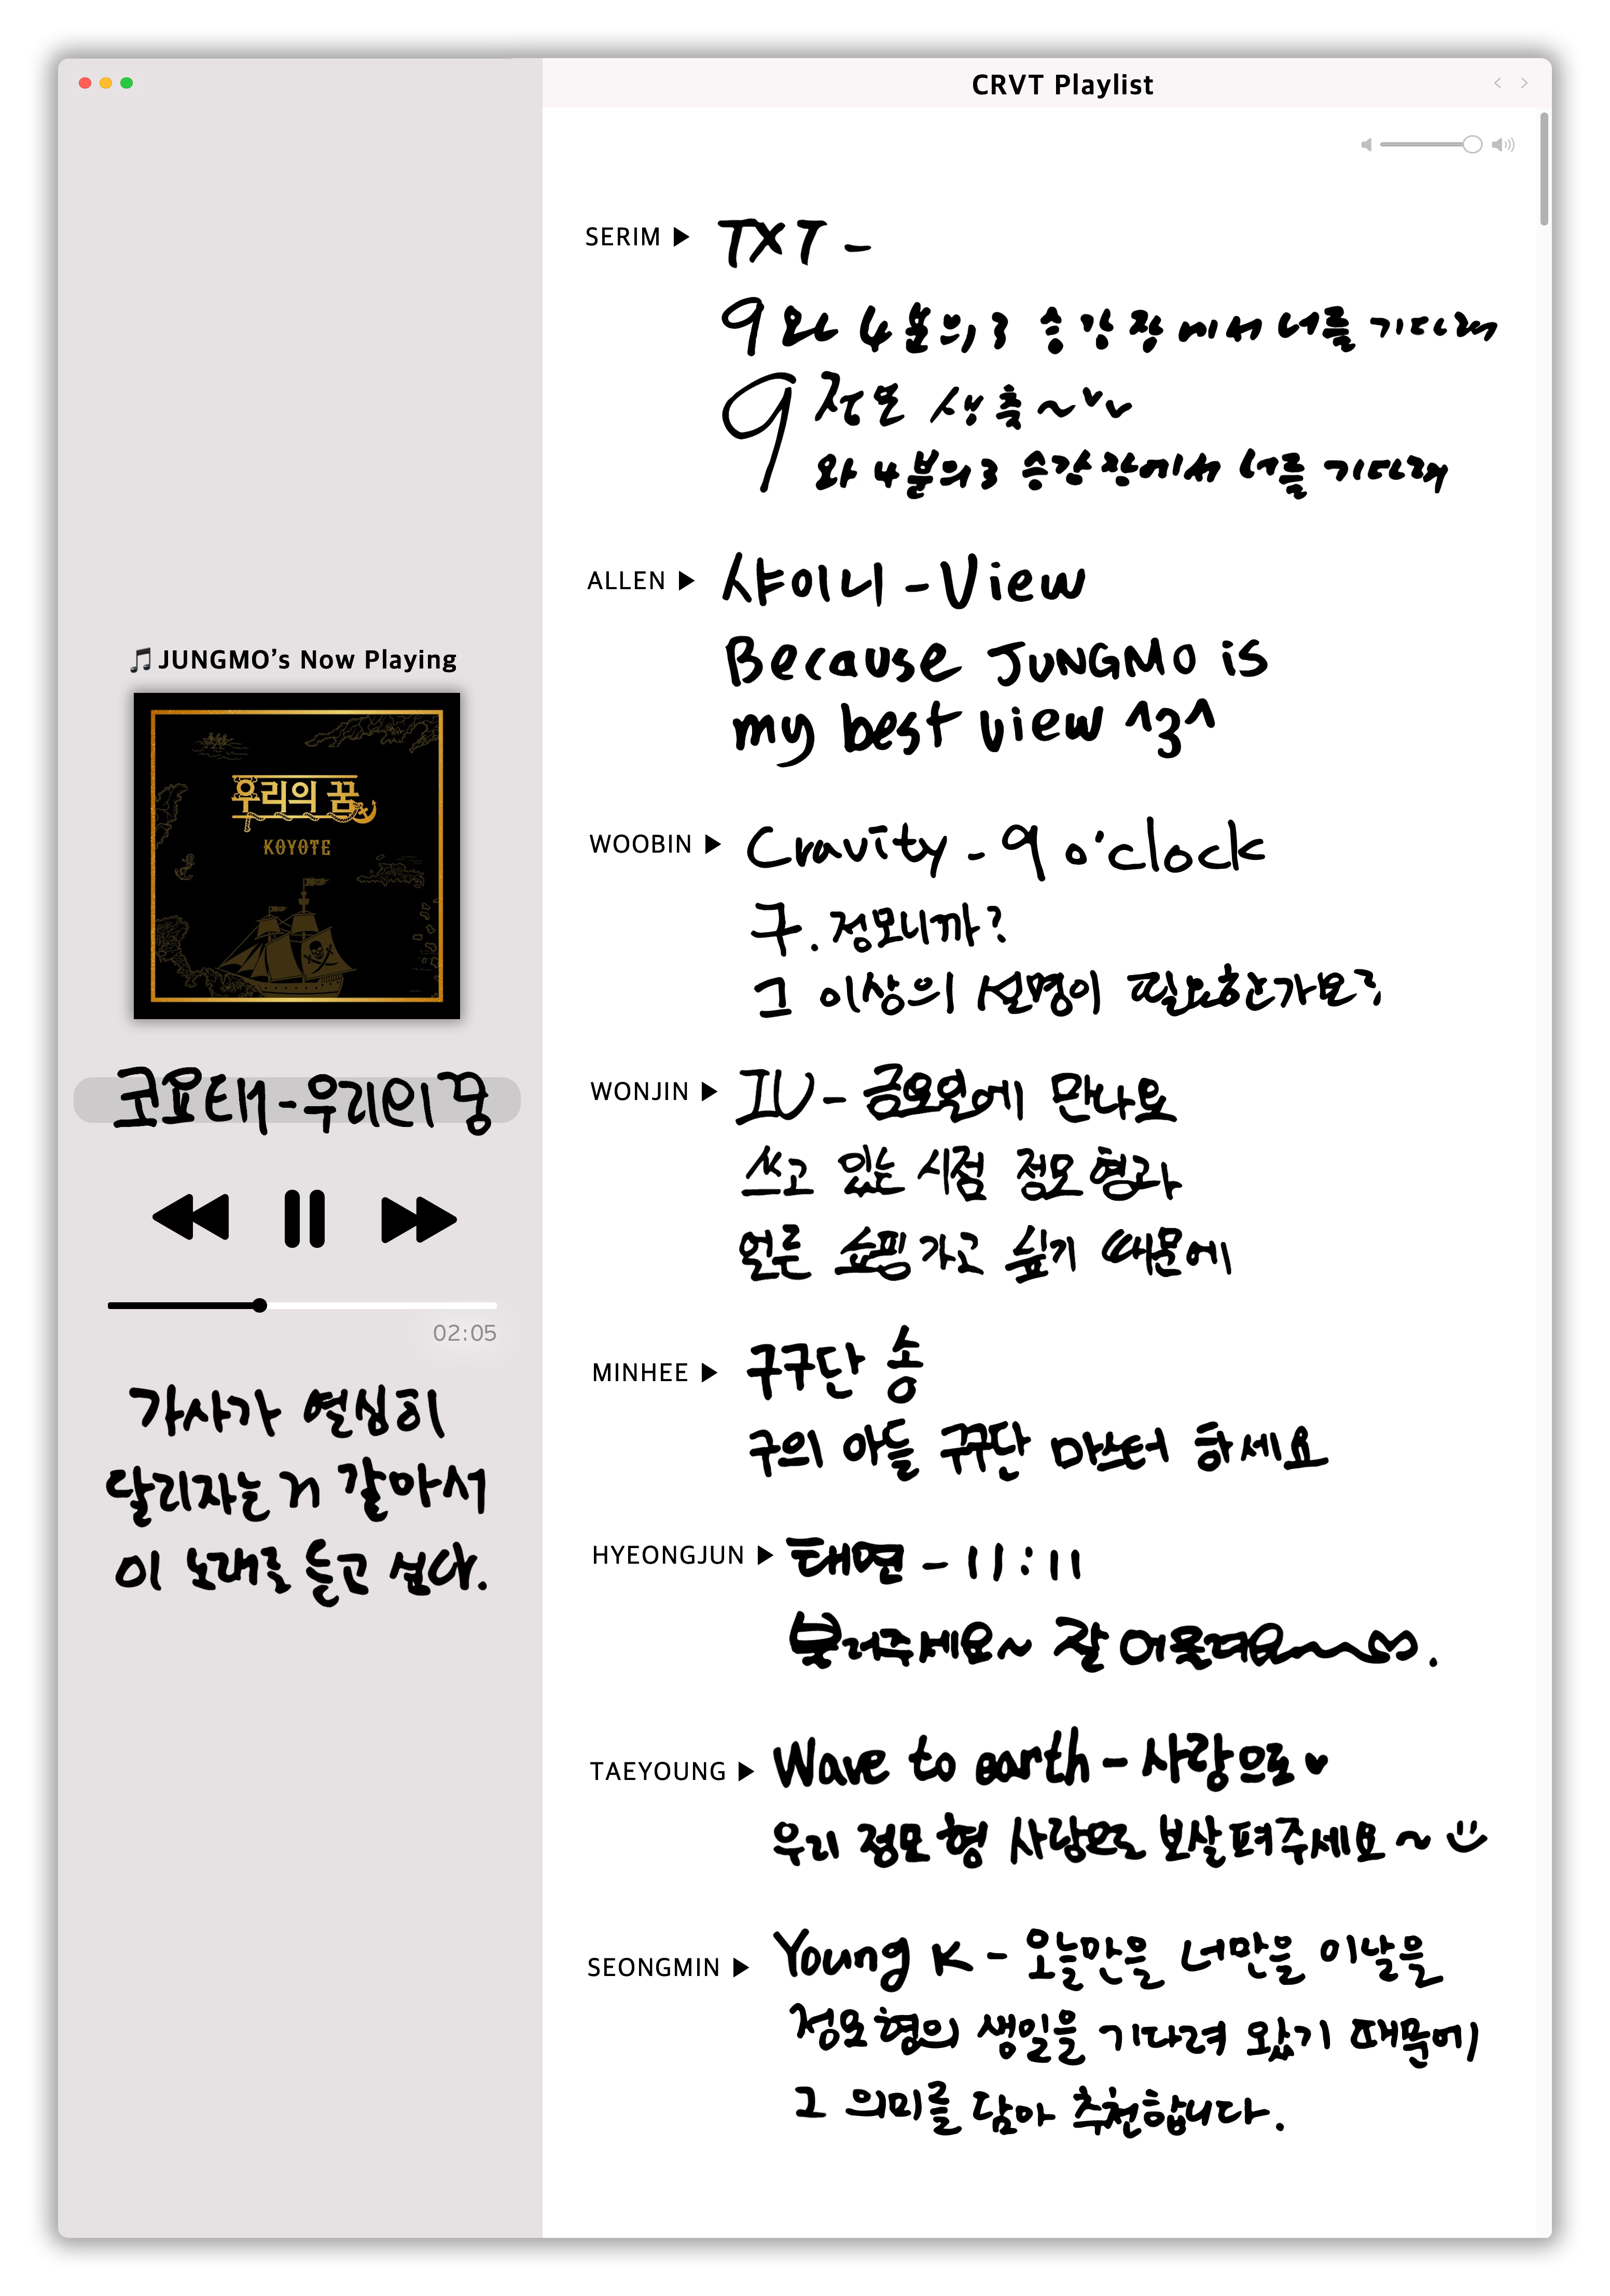 CRVT Playlist
🎵JUNGMO's Now Playing
우리의 꿈
KOYOTE
코요태-우리의꿈
02:05
가사가 열심히
달리자는 거 같아서
이 노래를 듣고 싶다.
SERIM ▶ TXT -
9와 4분의 3 승강장에서 너를 기다려
9 정모 생축~
와 4분의 3 승강장에서 너를 기다려
ALLEN ▶ 샤이니-View
Because JUNGMO is
my best view ^3^
WOOBIN ▶ Cravity - 9 o'clock
구.정모니까?
그 이상의 설명이 필요한가요?
WONJIN ▶ IU - 금요일에 만나요
쓰고 있는 시점 정모형과
얼른 쇼핑가고 싶기 때문에
MINHEE ▶ 구구단 송
구의 아들 구구단 마스터 하세요
HYEONGJUN ▶ 태연 - 11:11
불러주세요~ 잘 어울려요~♡.
TAEYOUNG ▶ Wave to earth - 사랑으로♥
우리 정모 형 사랑으로 보살펴주세요~
SEONGMIN ▶ Young K - 오늘만을 너만을 이날을
정모형의 생일을 기다려 왔기 때문에
그 의미를 담아 추천합니다.